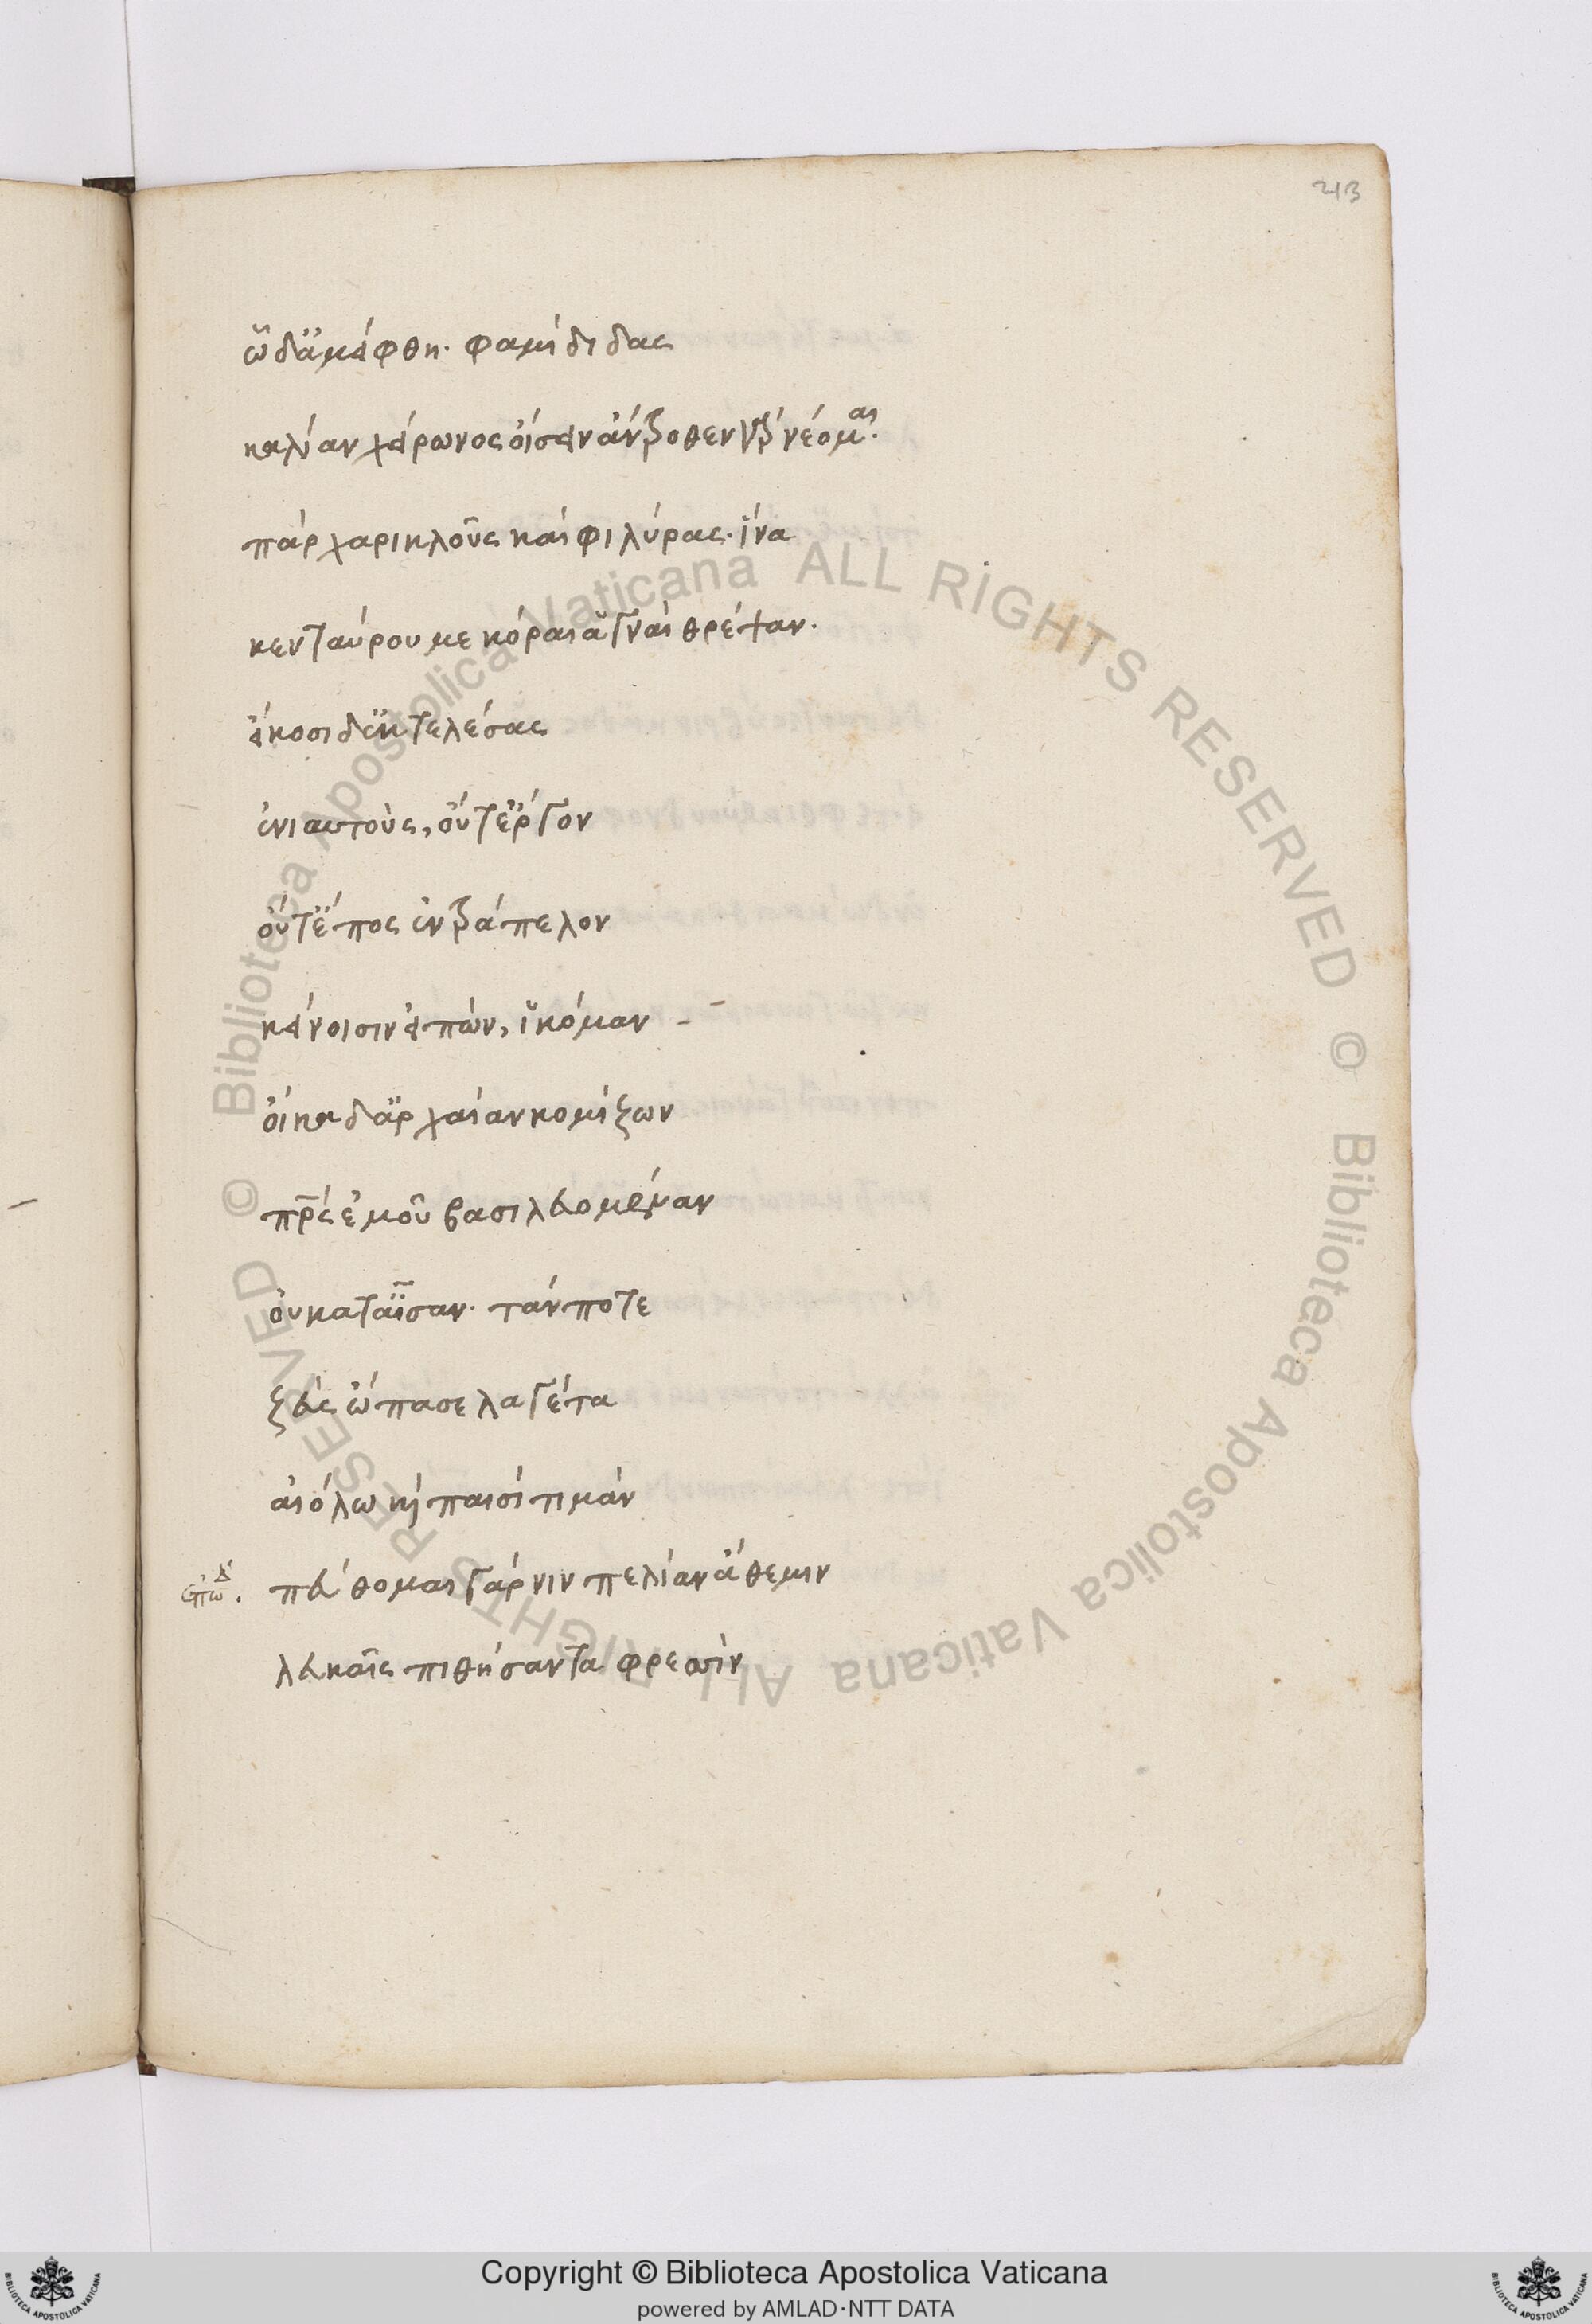 213
ὧδ' ἀμείφθη· φαμὶ διδασ
καλίαν χείρωνος οἴσειν ἄντροθεν γὰρ νέομαι·
πὰρ χαρικλοῦς καὶ φιλύρας· ἵνα
κενταύρου με κόραι ἁγναὶ θρέψαν·
εἴκοσι δ' ἐκτελέσας
ἐνιαυτοὺς, οὔτ' ἔργον
οὔτ' ἔπος ἐντράπελον
κείνοισιν εἰπὼν, ἱκόμαν
οἴκαδ' ἀρχαίαν κομίζων
πρς ἐμοῦ βασιλευομέναν
οὐ κατ' αἶσαν· τάν ποτε
ζεὺς ὤπασε λαγέτα
αἰόλω καὶ παισὶ τιμάν
ἐπῳδ. πεύθομαι γάρ νιν πελίαν ἄθεμιν
λευκαῖς πιθήσαντα φρεσὶν
© Biblioteca Apostolica Vaticana ALL RIGHTS RESERVED © Biblioteca Apostolica Vaticana ALL RIGHTS RESERVED
BIBLIOTECA APOSTOLICA VATICANA
Copyright © Biblioteca Apostolica Vaticana
powered by AMLAD·NTT DATA
BIBLIOTECA APOSTOLICA VATICANA